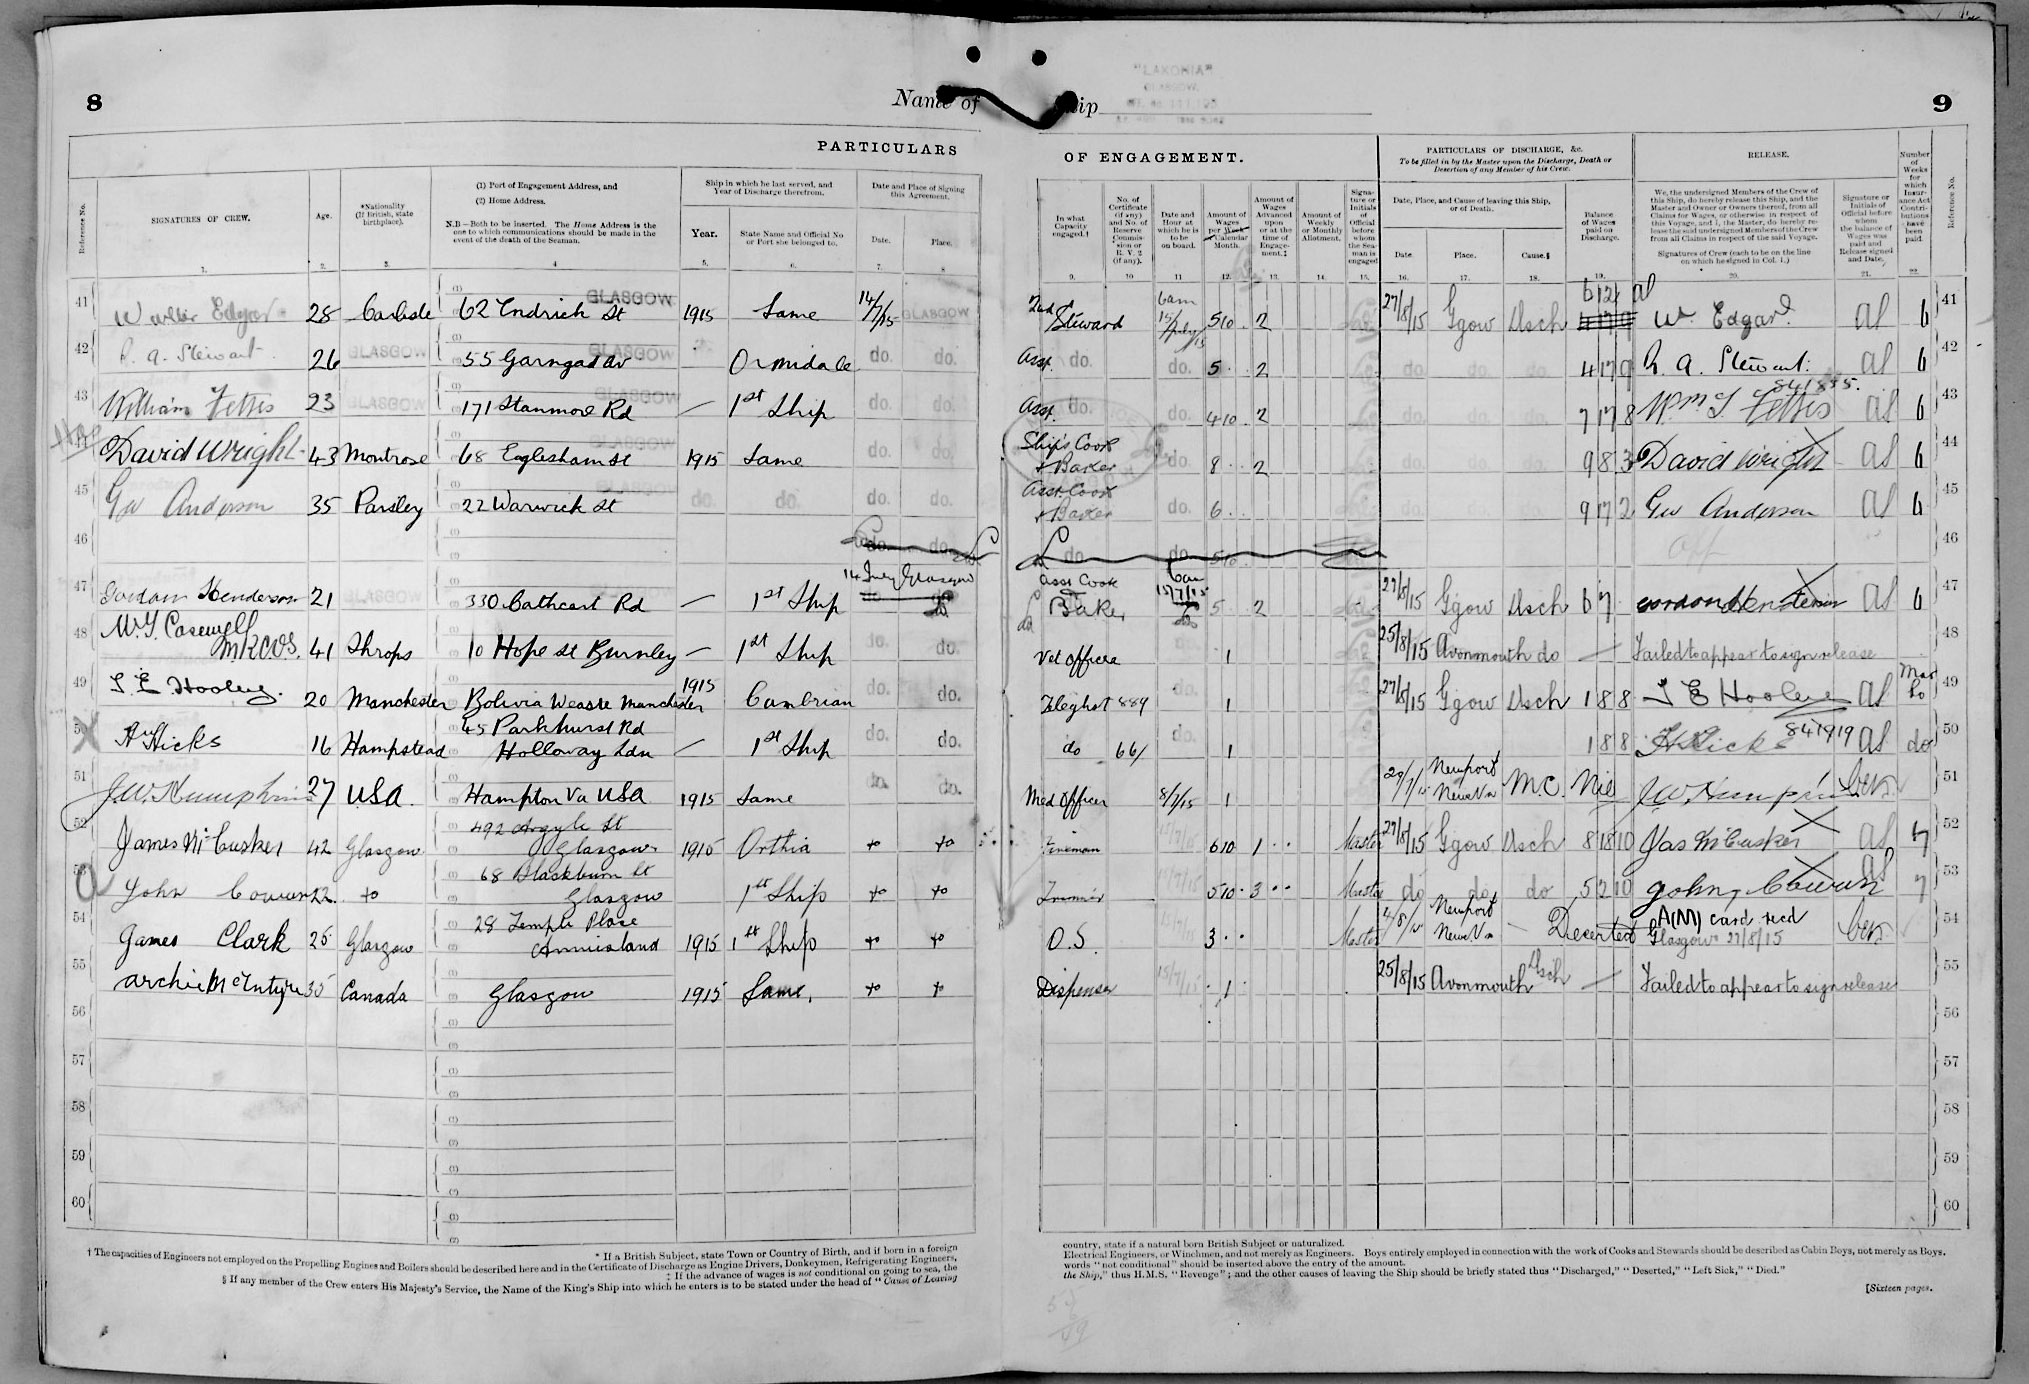 8
Name of Ship
"LAKONIA"
GLASGOW.
9
PARTICULARS OF ENGAGEMENT.
PARTICULARS OF DISCHARGE, &c.
To be filled in by the Master upon the Discharge, Death or Desertion of any Member of his Crew.
RELEASE.
Reference No.
SIGNATURES OF CREW.
Age.
*Nationality (If British, state birthplace).
(1) Port of Engagement Address, and
(2) Home Address.
N.B—Both to be inserted. The Home Address is the one to which communications should be made in the event of the death of the Seaman.
Ship in which he last served, and Year of Discharge therefrom.
Year.
State Name and Official No or Port she belonged to.
Date and Place of Signing this Agreement.
Date.
Place.
In what Capacity engaged.†
No. of Certificate (if any) and No. of Reserve Commission or R. V. 2 (if any).
Date and Hour at which he is to be on board.
Amount of Wages per Week Calendar Month.
Amount of Wages Advanced upon or at the time of Engagement.‡
Amount of Weekly or Monthly Allotment.
Signature or Initials of Official before whom the Seaman is engaged
Date, Place, and Cause of leaving this Ship, or of Death.
Date
Place.
Cause.§
Balance of Wages paid on Discharge.
We, the undersigned Members of the Crew of this Ship, do hereby release this Ship, and the Master and Owner or Owners thereof, from all Claims for Wages, or otherwise in respect of this Voyage, and I, the Master, do hereby release the said undersigned Members of the Crew from all Claims in respect of the said Voyage.
Signatures of Crew (each to be on the line on which he signed in Col. 1.)
Signature or Initials of Official before whom the balance of Wages was paid and Release signed and Date.
Number of Weeks for which Insurance Act Contributions have been paid.
Reference No.
1. 2. 3. 4 5. 6. 7. 8 9. 10 11 12. 13. 14. 15. 16. 17. 18. 19. 20. 21. 22.
41 Walter Edgar 28 Carlisle 62 Endrick St GLASGOW 1915 Same 14/7/15 GLASGOW 2nd Steward 6am 15/July/15 5 10 . 2 27/8/15 Ggow Dsch 6 12 W. Edgar. al 6 41
42 R. A. Stewart 26 GLASGOW 55 Garngad Av GLASGOW Ormidale do. do. Asst. do. do. 5 . . 2 do do do. 4 17 9 R. A. Stewart. al 6 42
43 William Fettes 23 GLASGOW 171 Stanmore Rd GLASGOW — 1st Ship do. do. Asst. do. do. 4 10 . 2 7 17 8 Wm J Fettes 841835. al 6 43
44 David Wright 43 Montrose 68 Eaglesham St GLASGOW 1915 Same do. do. Ship's Cook & Baker do 8 . . 2 9 8 3 David Wright al 6 44
45 Geo Anderson 35 Paisley 22 Warwick St GLASGOW do. do. do. do. Asst. Cook & Baker do. 6 . . 9 17 2 Geo Anderson al 6 45
46 do. do. do do 5 10 46
47 Gordon Henderson 21 GLASGOW 330 Cathcart Rd — 1st Ship 14 July Glasgow Asst Cook & Baker 6am 15/7/15 5 . . 2 27/8/15 Ggow Dsch 6 7 Gordon Henderson al 6 47
48 W. J. Casewell M.R.C.V.S. 41 Shrops 10 Hope St Burnley — 1st Ship do. do. Vet Officer 1 25/8/15 Avonmouth do — Failed to appear to sign release 48
49 S E Hooley. 20 Manchester Bolivia Weaste Manchester 1915 Cambrian do. do. Tleghst 889 do. 1 27/8/15 Ggow Dsch 1 8 8 S E Hooley al Mar Co 49
50 H Hicks 16 Hampstead 45 Parkhurst Rd Holloway Ldn — 1st Ship do. do. do 661 do. 1 1 8 8 H Hicks 847919 al do 50
51 J. W. Humphries 27 U.S.A. Hampton Va USA 1915 Same do. do. Med Officer 8/7/15 1 Newport News Va M.C. Nil 51
52 James McCusker 42 Glasgow 492 Argyle St Glasgow 1915 Orthia do do Fireman 15/7/15 6 10 . 1 . . Master 27/8/15 Ggow Dsch 8 18 10 Jas McCusker al 7 52
53 John Cowan 22 do 68 Blackburn St Glasgow 1st Ship do do Trimmer 15/7/15 5 10 . 3 . . Master do do do 5 2 10 John Cowan al 7 53
54 James Clark 26 Glasgow 28 Temple Place Anniesland 1915 1st Ship do do O.S. 15/7/15 3 . . Master 4/8/15 Newport News Va — Deserted A(M) card recd Glasgow 27/8/15 54
55 Archie McIntyre 35 Canada Glasgow 1915 Same. do do Dispenser 15/7/15 . 1 . 25/8/15 Avonmouth Dsch — Failed to appear to sign release 55
56 56
57 57
58 58
59 59
60 60
* If a British Subject, state Town or Country of Birth, and if born in a foreign country, state if a natural born British Subject or naturalized.
† The capacities of Engineers not employed on the Propelling Engines and Boilers should be described here and in the Certificate of Discharge as Engine Drivers, Donkeymen, Refrigerating Engineers, Electrical Engineers, or Winchmen, and not merely as Engineers. Boys entirely employed in connection with the work of Cooks and Stewards should be described as Cabin Boys, not merely as Boys.
‡ If the advance of wages is not conditional on going to sea, the words "not conditional" should be inserted above the entry of the amount.
§ If any member of the Crew enters His Majesty's Service, the Name of the King's Ship into which he enters is to be stated under the head of "Cause of Leaving the Ship," thus H.M.S. "Revenge"; and the other causes of leaving the Ship should be briefly stated thus "Discharged," "Deserted," "Left Sick," "Died."
[Sixteen pages.